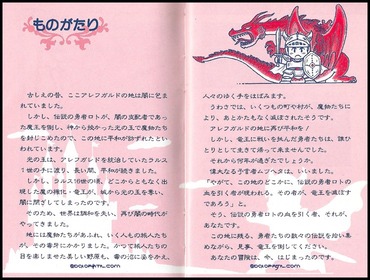 ものがたり
古しえの昔、ここアレフガルドの地は闇に包ま
れていました。
しかし、伝説の勇者ロトが、闇の支配者であっ
た魔王を倒し、神から授かった光の玉で魔物たち
を封じこめたので、この地に平和が訪ずれたとい
われています。
光の玉は、アレフガルドを統治していたラルス
1世の手に渡り、長い間、平和が続きました。
しかし、ラルス16世の頃、どこからともなく出
現した悪の権化・竜王が、城から光の玉を奪い、
闇に閉ざしてしまったのです。
そのため、世界は調和を失い、再び闇の時代が
やってきました。
地には魔物たちがあふれ、いく人もの旅人たち
が、その毒牙にかかりました。かつて旅人たちの
目を楽しませた美しい野原も、毒の沼に姿をかえ、
人々のゆく手をはばみます。
うわさでは、いくつもの町や村が、魔物たちに
より、あとかたもなく滅ぼされたそうです。
アレフガルドの地に再び平和を!
しかし、竜王に戦いを挑んだ勇者たちは、誰ひ
とりとして生きて帰って来ませんでした。
それから何年が過ぎたでしょうか。
偉大なる予言者ムツヘタは、いいました。
「やがて、この地のどこかに、伝説の勇者ロトの
血を引く者が現われる。その者が、竜王を滅ぼす
であろう」と。
そう、伝説の勇者ロトの血を引く者、それが、
あなたです。
この地に残る、勇者たちの数々の伝説を拾い集
めながら、見事、竜王を倒してください。
あなたの冒険は、今、はじまったのです。